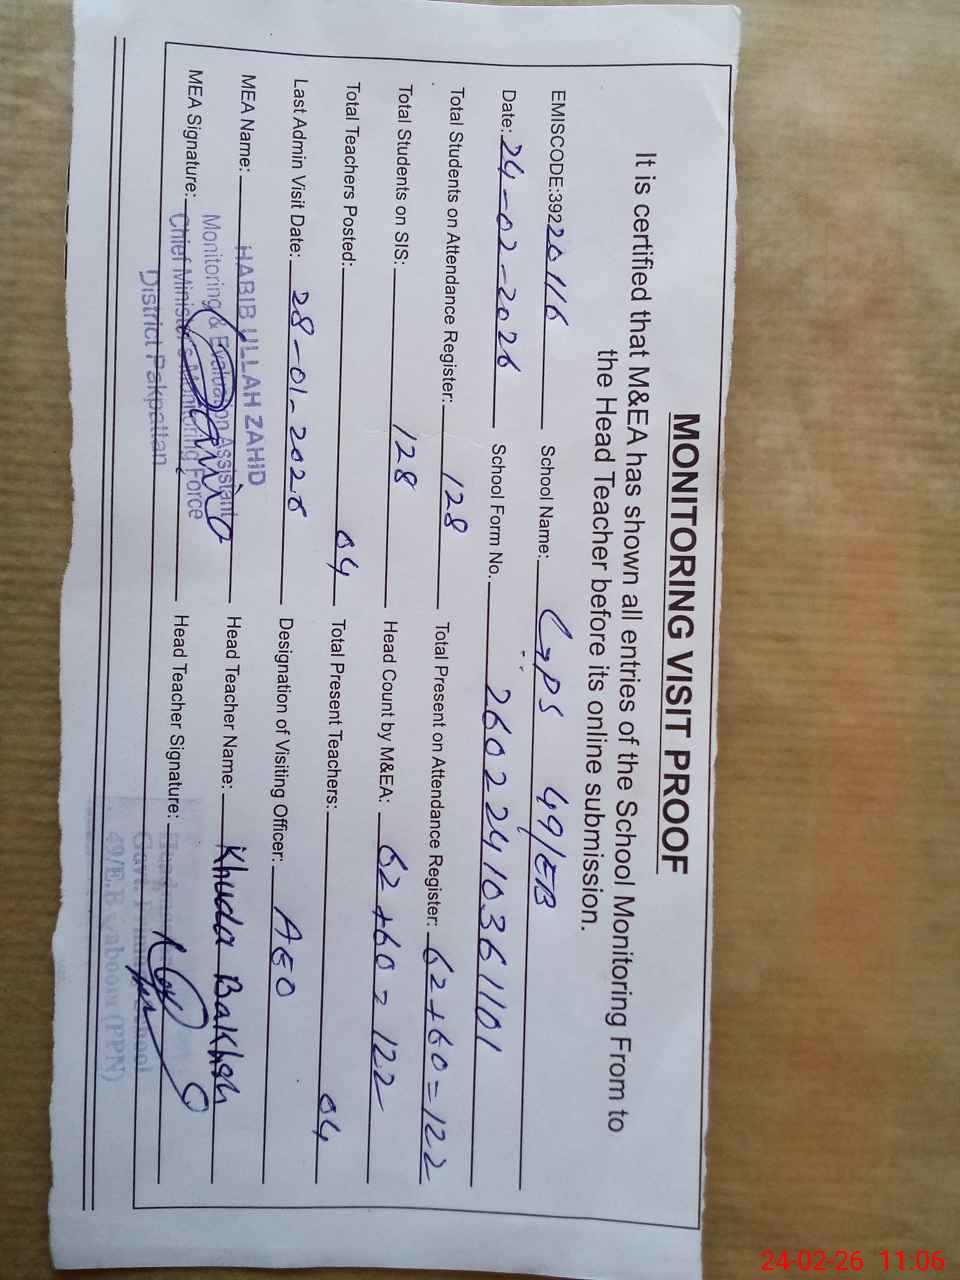 MONITORING VISIT PROOF
It is certified that M&EA has shown all entries of the School Monitoring From to
the Head Teacher before its online submission.
EMISCODE:39220116 School Name: GPS 49/EB
Date: 24-02-2026 School Form No. 26022410361101
Total Students on Attendance Register: 128 Total Present on Attendance Register: 62+60=122
Total Students on SIS: 128 Head Count by M&EA: 62+60=122
Total Teachers Posted: 04 Total Present Teachers: 04
Last Admin Visit Date: 28-01-2026 Designation of Visiting Officer: AEO
MEA Name: HABIB ULLAH ZAHID Head Teacher Name: Khuda Bakhsh
Monitoring & Evaluation Assistant
MEA Signature: Chief Minister's Monitoring Force Head Teacher Signature:
District Pakpattan
49/E.B (PPN)
24-02-26 11:06